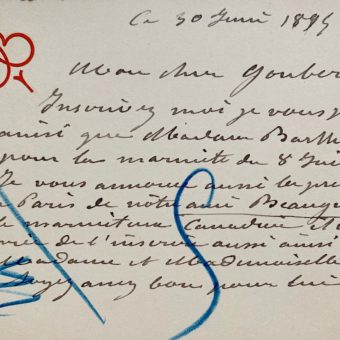 Ce 30 Juin 1895
Mon cher Gouber
Inscrivez moi je vous p
ainsi que Madame Barth
pour la marmite du 8 Jui
Je vous annonce aussi la pro
à Paris de notre ami Beaug
le marmiteux Canadien
de l'inscrire aussi ainsi
Madame et Mademoiselle
Soyez assez bon pour lui